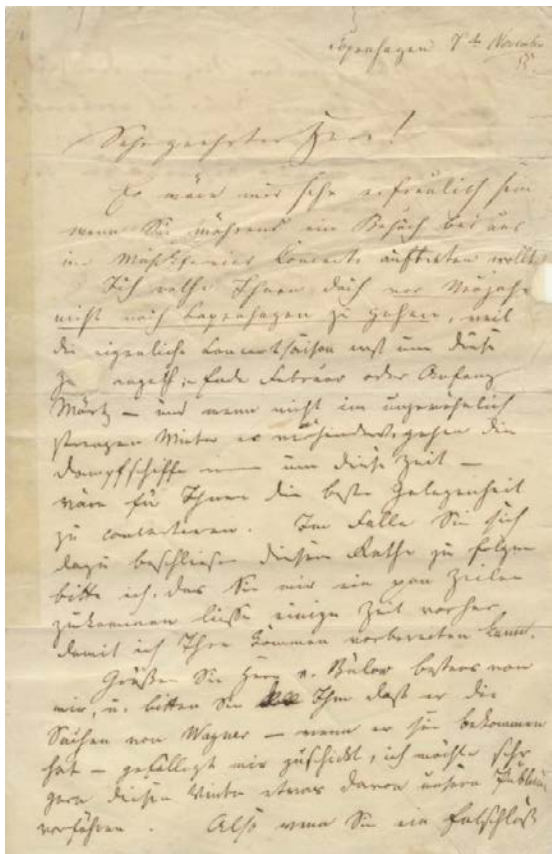 Copenhagen 7de November
55
Sehr geehrter Herr!
Es wäre mir sehr erfreulich sein
wenn Sie während ein Besuch bei uns
im Musikverein Concerte auftreten wollte
Ich rathe Ihnen doch vor Neujahr
nicht nach Copenhagen zu gehen, weil
die eigenliche Concertsaison erst um diese
Ende Februar oder Anfang
Märtz – und wenn nicht im ungewöhnlich
strengen Winter es verhindert, gehen die
Dampfschiffe um diese Zeit –
wäre für Ihnen die beste Gelegenheit
zu concertieren. Im Falle Sie sich
dazu beschliesen diesem Rathe zu folgen
bitte ich, das Sie mir ein paar Zeilen
zukommen liesse einige Zeit vorher,
damit ich Ihre kommen vorbereiten kann.
Grüßen Sie Herr v. Bülow bestens von
mir, u. bitten Sie Ihm dast er die
Sachen von Wagner – wenn er sie bekommen
hat – gefälligst mir zuschickt, ich möchte sehr
gern diesen Winter etwas davon unsern Publicum
vorführen. Also wenn Sie ein Entschluß